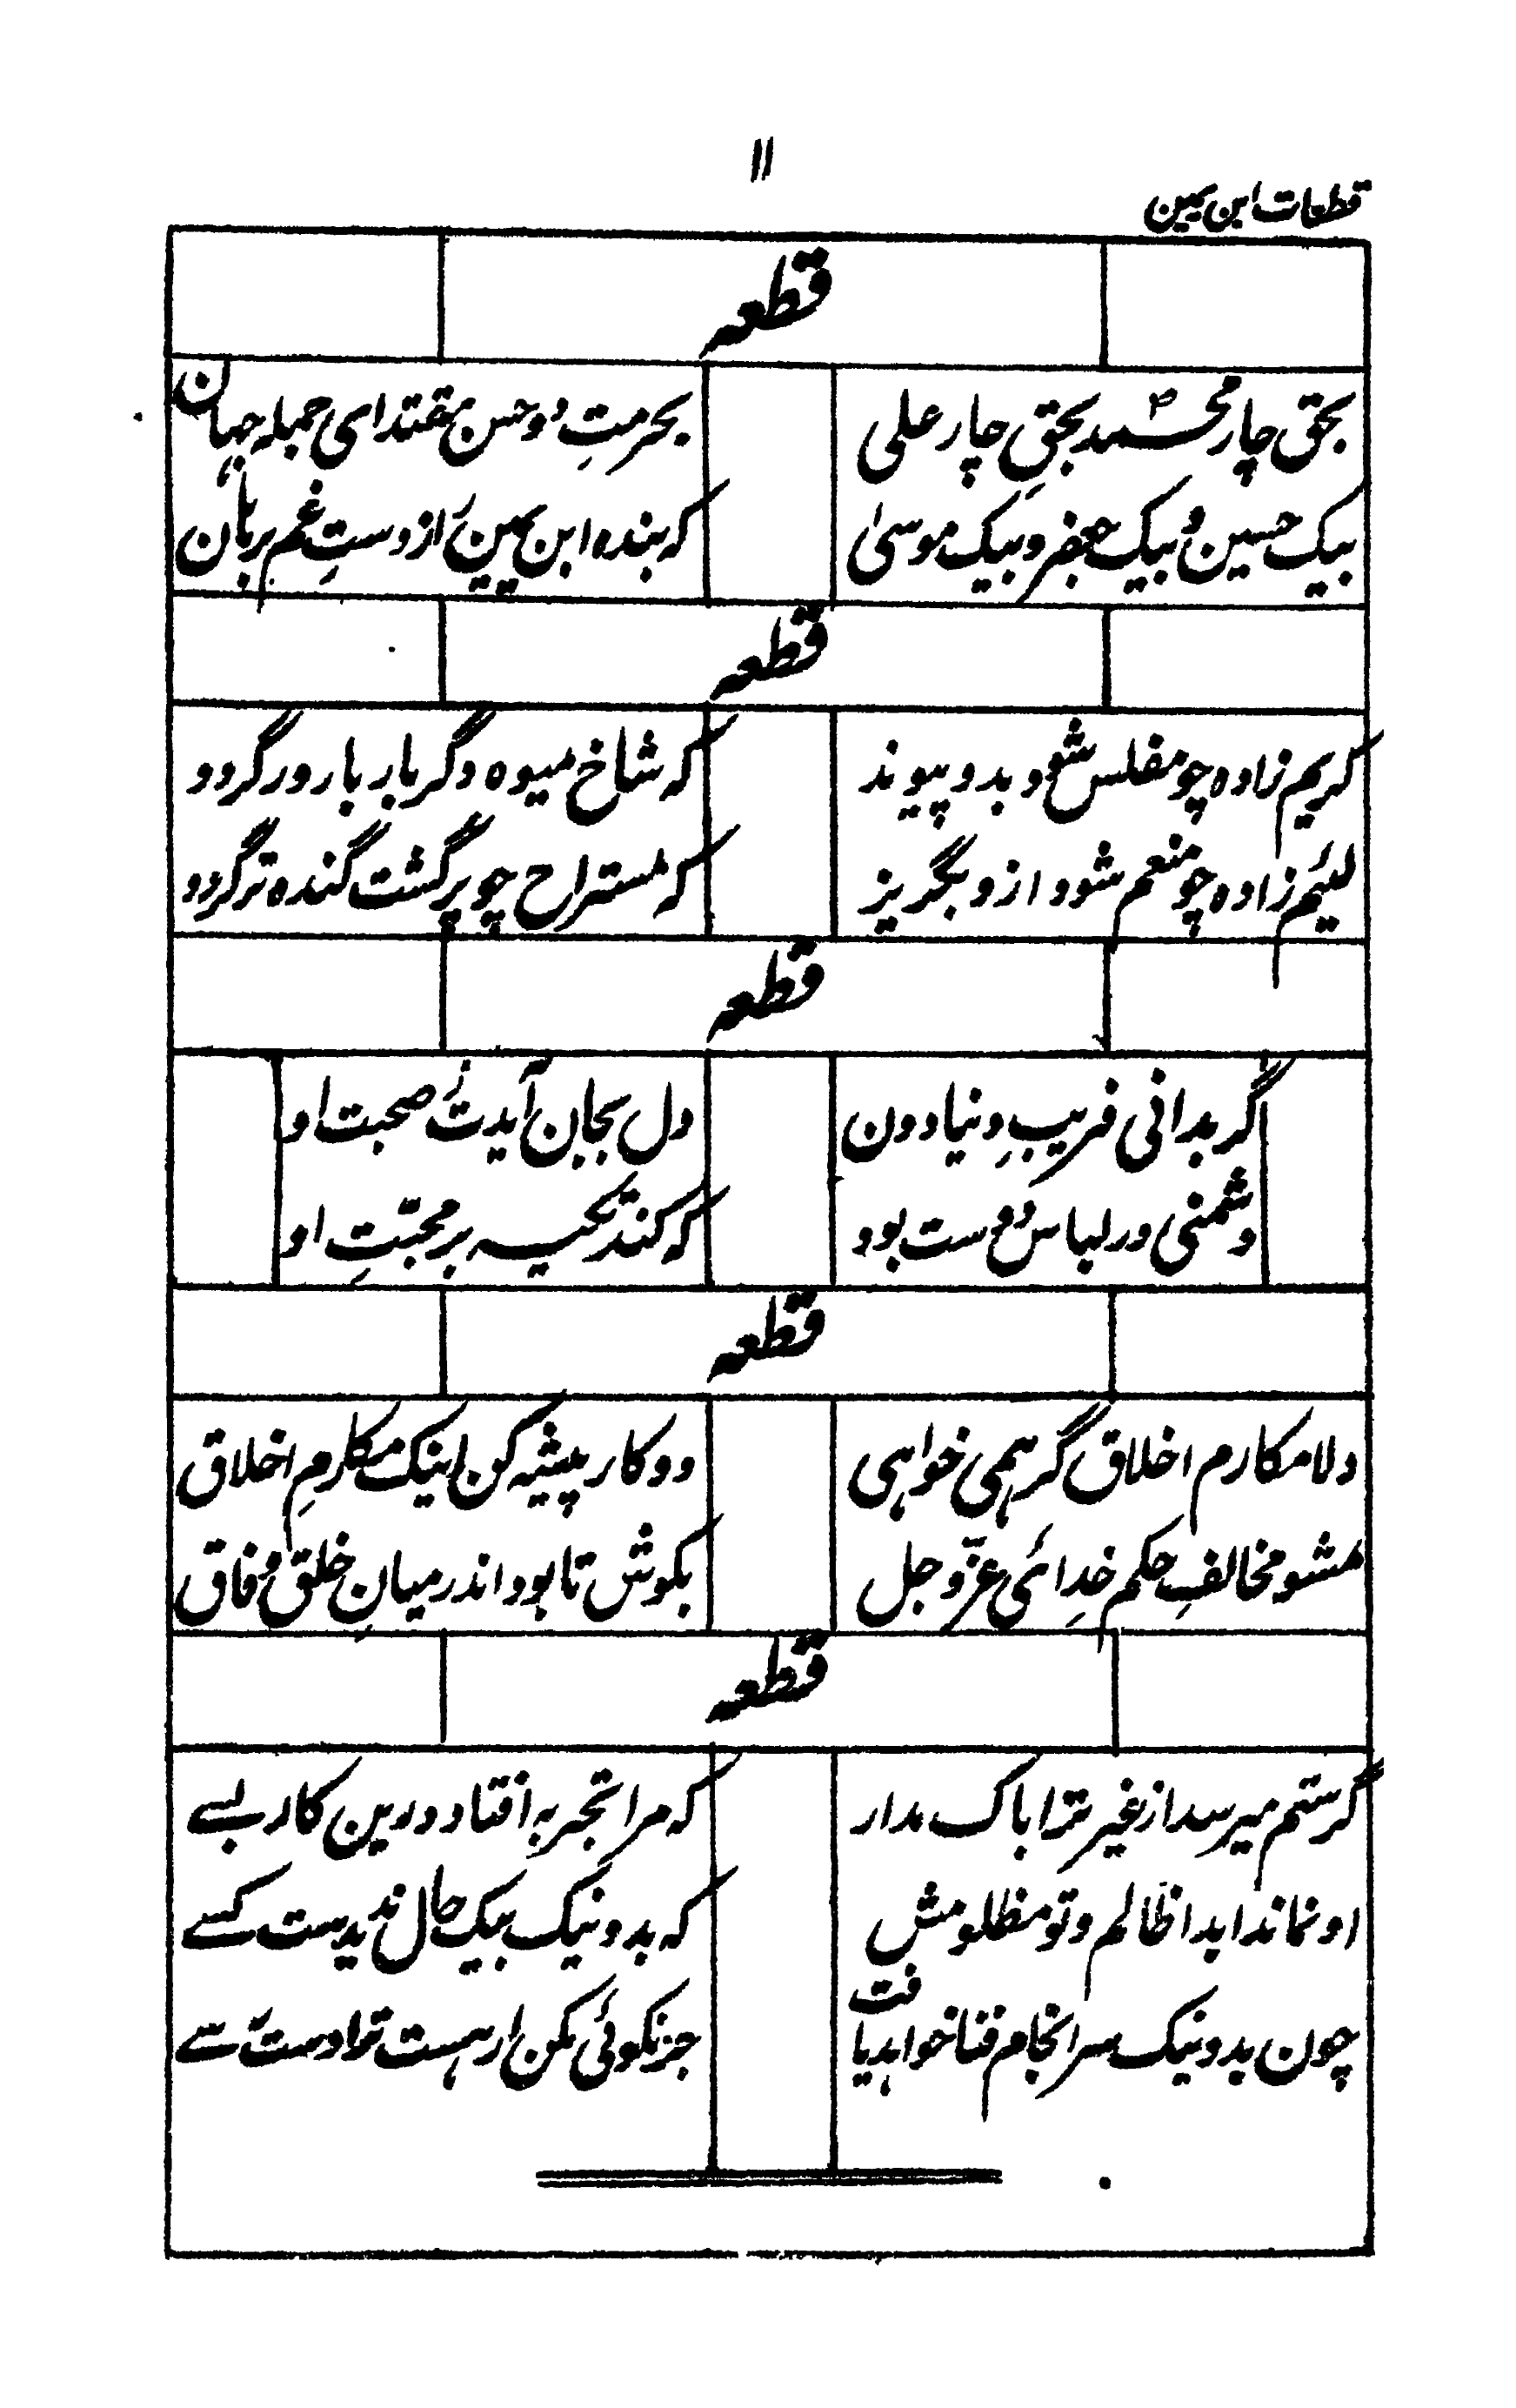 ۱۱
قطعات ابن یمین
قطعه
بحق چار محمدؐ بحقِ چار علی بحرمتِ دو حسن مقتدای جمله جهان
بیک حسین و بیک جعفر و بیک موسیٰ که بنده ابن یمین را ز دستِ غم برهان
قطعه
کریم زاده چو مفلس شود بدو پیوند که شاخ میوه دگر بار بارور گردد
لئیم زاده چو منعم شود ازو بگریز که مستراح چو پر گشت گنده تر گردد
قطعه
گر بدانی فریبِ دنیا دون دل بجان آیدت ز صحبت او
دشمنی در لباس دوست بود که کند تکیه بر محبّتِ او
قطعه
دلا مکارم اخلاق گر همی خواهی دو کار پیشه کن اینک مکارمِ اخلاق
مشو مخالفِ حکم خدائی عزّ و جل بکوش تا بود اندر میانِ خلق وفاق
قطعه
گر ستم میرسد از غیر ترا باک مدار که مرا تجربه افتاد درین کار بسے
او نماند ابدا ظالم و تو مظلومش که بد و نیک بیک حال ندیدست کسے
چون بد و نیک سرانجام فنا خواهد یافت جز نکوئی مکن ار هست ترا دسترسے